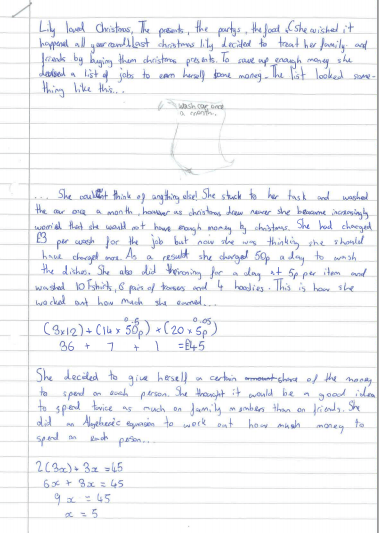 Lily loved Christmas, The presents, the partys, the food & (she wished it
happened all year round. Last christmas lily decided to treat her family and
friends by buying them christmas presents. To save up enough money she
devised a list of jobs to earn herself some money. The list looked some-
thing like this...
Wash car once
a month.
... She couldn't think of anything else! She stuck to her task and washed
the car once a month, however as christmas drew nearer she became increasingly
worried that she would not have enough money by christmas. She had charged
£3 per wash for the job but now she was thinking she should
have charged more. As a result she charged 50p a day to wash
the dishes. She also did the ironing for a day at 5p per item and
washed 10 T shirts, 6 pairs of trousers and 4 hoodies. This is how she
worked out how much she owned...
0.5 0.05
(3x12) + (14 x 50p) + (20 x 5p)
36 + 7 + 1 = £45
She decided to give herself a certain amount share of the money
to spend on each person. She thought it would be a good idea
to spend twice as much on family members than on friends. She
did an Algebraic equasion to work out how much money to
spend on each person...
2(3x) + 3x = 45
6x + 3x = 45
9x = 45
x = 5